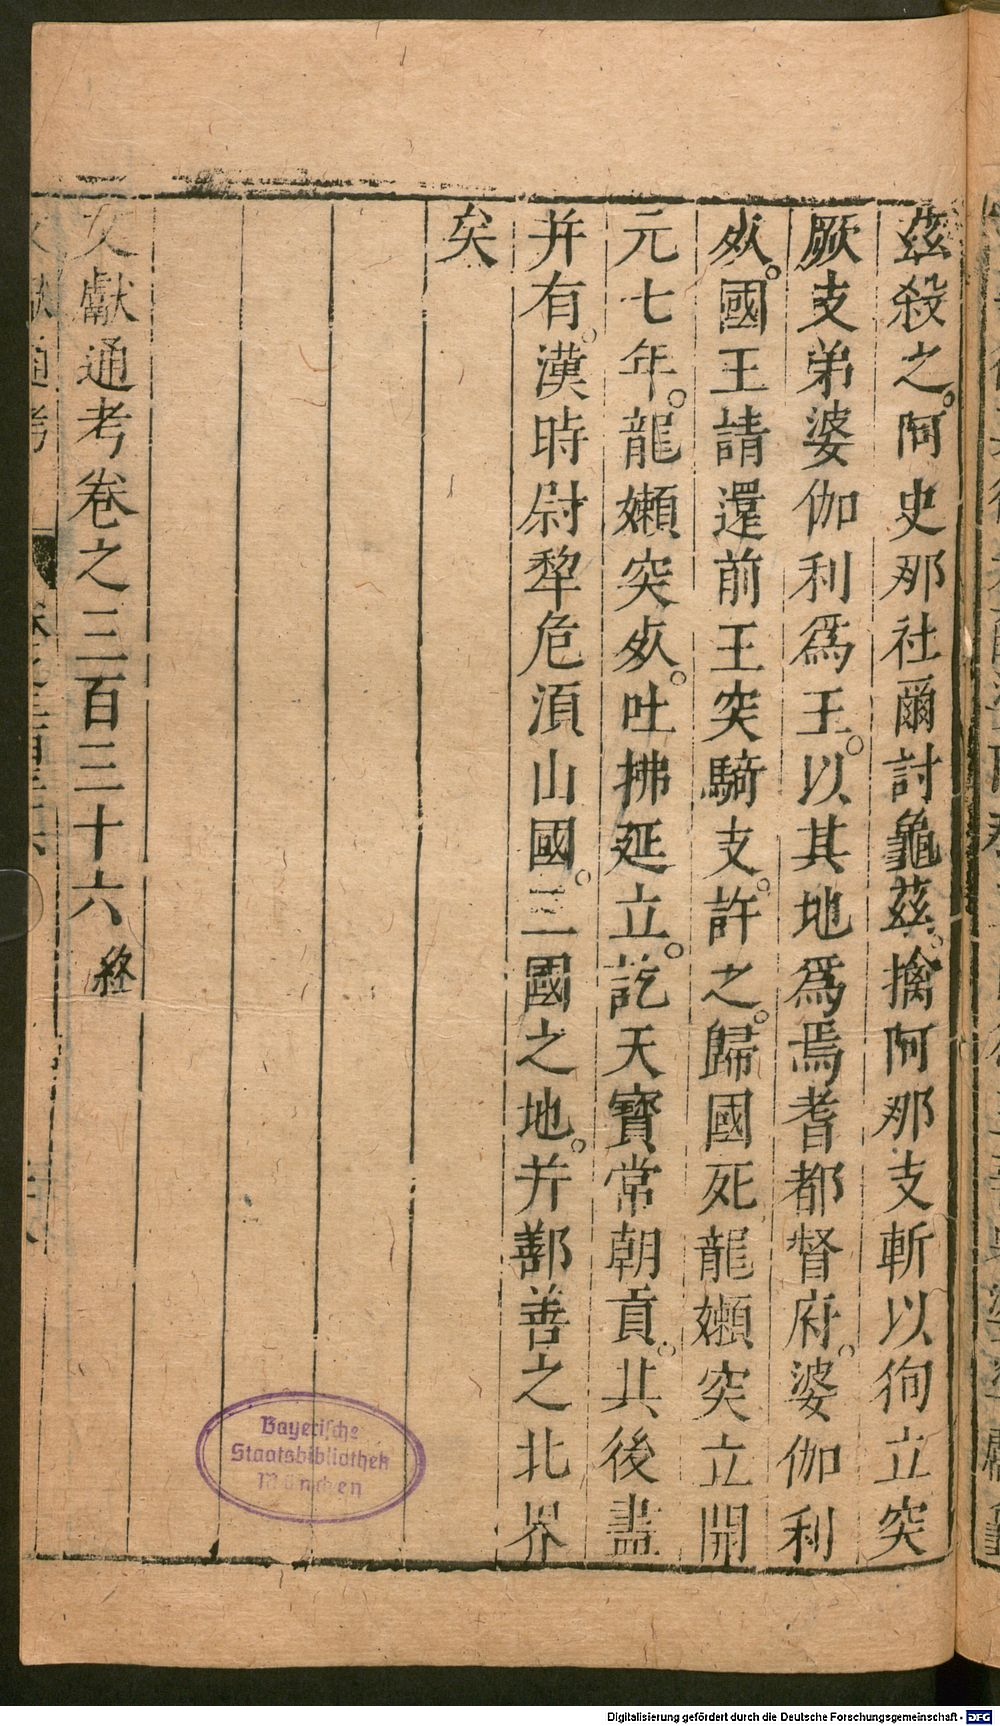 茲殺之。阿史那社爾討龜茲。擒阿那支斬以徇立突
厥支弟婆伽利爲王。以其地爲焉耆都督府。婆伽利
死。國王請還前王突騎支。許之。歸國死龍嬾突立開
元七年。龍嬾突死。吐拂延立。訖天寶常朝貢。其後盡
并有。漢時尉犂危湏山國。三國之地。并鄯善之北界
矣
文獻通考卷之三百三十六 終
Bayerische
Staatsbibliothek
München
Digitalisierung gefördert durch die Deutsche Forschungsgemeinschaft - DFG